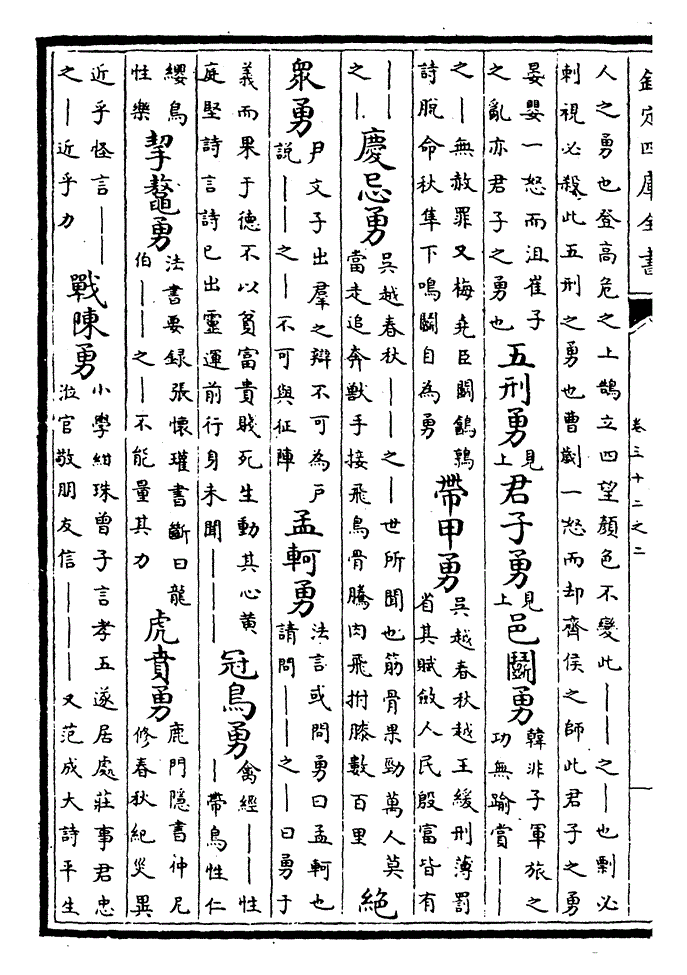 欽定四庫全書
卷三十二之二
人之勇也登高危之上鵠立四望顏色不變此――之―也剽必
刺視必殺此五刑之勇也曹劌一怒而却齊侯之師此君子之勇
晏嬰一怒而沮崔子
之亂亦君子之勇也
五刑勇見上
君子勇見上
邑鬭勇
韓非子軍旅之
功無踰賞――
之―無赦罪又梅堯臣鬭鵪鶉
詩脱命秋隼下鳴鬭自為勇
帶甲勇
吳越春秋越王緩刑薄罰
省其賦斂人民殷富皆有
――
之―
慶忌勇
吳越春秋――之―世所聞也筋骨果勁萬人莫
當走追奔獸手接飛鳥骨騰肉飛拊膝數百里
絶
衆勇
尹文子出羣之辯不可為戸
説――之―不可與征陣
孟軻勇
法言或問勇曰孟軻也
請問――之―曰勇于
義而果于德不以貧富貴賤死生動其心黄
庭堅詩言詩已出靈運前行身未聞―――
冠鳥勇
禽經――性
―帶鳥性仁
纓鳥
性樂
挈鼇勇
法書要録張懷瓘書斷曰龍
伯――之―不能量其力
虎賁勇
鹿門隱書仲尼
修春秋紀災異
近乎怪言――
之―近乎力
戰陳勇
小學紺珠曾子言孝五遂居處莊事君忠
涖官敬朋友信―――又范成大詩平生